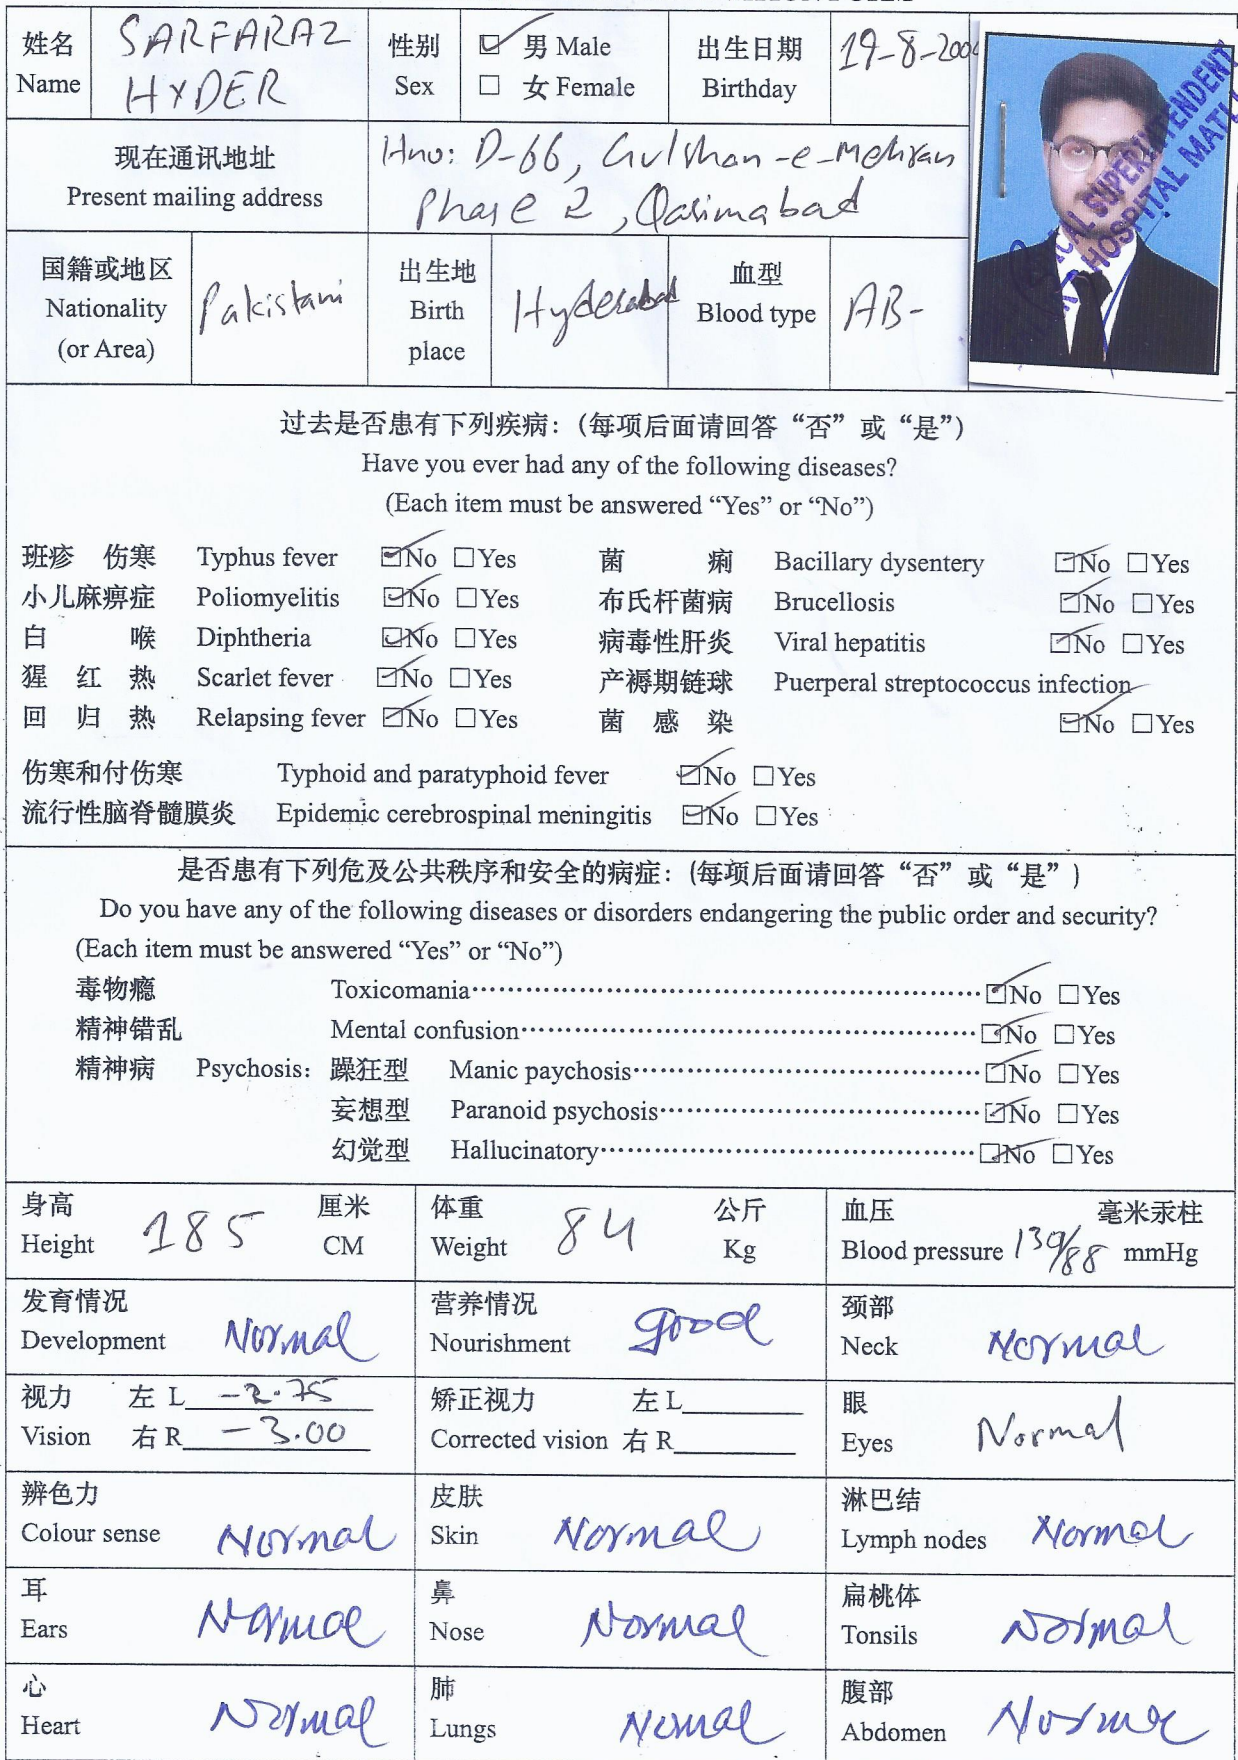 姓名 Name SARFARAZ HYDER 性别 Sex ☑ 男 Male ☐ 女 Female 出生日期 Birthday 19-8-200
现在通讯地址 Present mailing address Hno: D-66, Gulshan-e-Mehran
Phase 2, Qasimabad
国籍或地区 Nationality (or Area) Pakistani 出生地 Birth place Hyderabad 血型 Blood type AB-
SUPERINTENDENT
HOSPITAL MATLI
过去是否患有下列疾病：（每项后面请回答“否”或“是”）
Have you ever had any of the following diseases?
(Each item must be answered “Yes” or “No”)
班疹 伤寒 Typhus fever ☑No ☐Yes 菌 痢 Bacillary dysentery ☑No ☐Yes
小儿麻痹症 Poliomyelitis ☑No ☐Yes 布氏杆菌病 Brucellosis ☑No ☐Yes
白 喉 Diphtheria ☑No ☐Yes 病毒性肝炎 Viral hepatitis ☑No ☐Yes
猩 红 热 Scarlet fever ☑No ☐Yes 产褥期链球 Puerperal streptococcus infection
回 归 热 Relapsing fever ☑No ☐Yes 菌 感 染 ☑No ☐Yes
伤寒和付伤寒 Typhoid and paratyphoid fever ☑No ☐Yes
流行性脑脊髓膜炎 Epidemic cerebrospinal meningitis ☑No ☐Yes
是否患有下列危及公共秩序和安全的病症：(每项后面请回答“否”或“是”)
Do you have any of the following diseases or disorders endangering the public order and security?
(Each item must be answered “Yes” or “No”)
毒物瘾 Toxicomania ☑No ☐Yes
精神错乱 Mental confusion ☑No ☐Yes
精神病 Psychosis: 躁狂型 Manic paychosis ☑No ☐Yes
妄想型 Paranoid psychosis ☑No ☐Yes
幻觉型 Hallucinatory ☑No ☐Yes
身高 Height 185 厘米 CM 体重 Weight 84 公斤 Kg 血压 Blood pressure 139/88 毫米汞柱 mmHg
发育情况 Development Normal 营养情况 Nourishment good 颈部 Neck Normal
视力 Vision 左 L -2.75 右 R -3.00 矫正视力 Corrected vision 左 L 右 R 眼 Eyes Normal
辨色力 Colour sense Normal 皮肤 Skin Normal 淋巴结 Lymph nodes Normal
耳 Ears Normal 鼻 Nose Normal 扁桃体 Tonsils Normal
心 Heart Normal 肺 Lungs Normal 腹部 Abdomen Normal